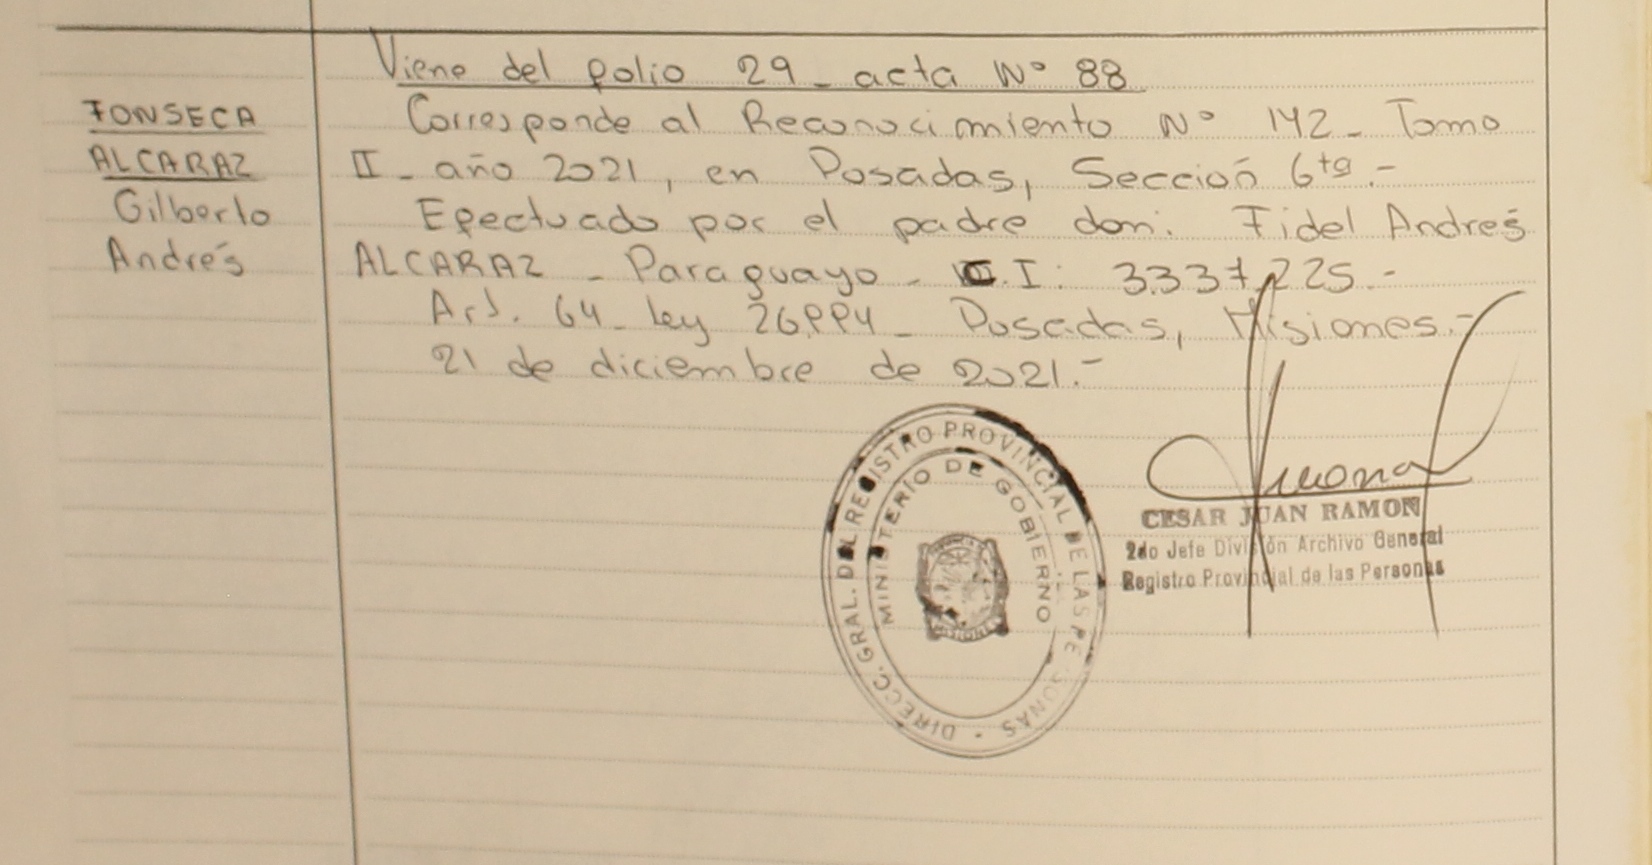 Viene del folio 29_ acta N° 88
FONSECA
ALCARAZ
Gilberto
Andrés
Corresponde al Reconocimiento N° 142_ Tomo
II_ año 2021, en Posadas, Sección 6ta.-
Efectuado por el padre don: Fidel Andrés
ALCARAZ _ Paraguayo _ C.I: 3.337.225.-
Art. 64_ ley 26.994_ Posadas, Misiones.-
21 de diciembre de 2021.-
DIRECC. GRAL. DEL REGISTRO PROVINCIAL DE LAS PERSONAS
MINISTERIO DE GOBIERNO
MISIONES
CESAR JUAN RAMON
2do Jefe División Archivo General
Registro Provincial de las Personas